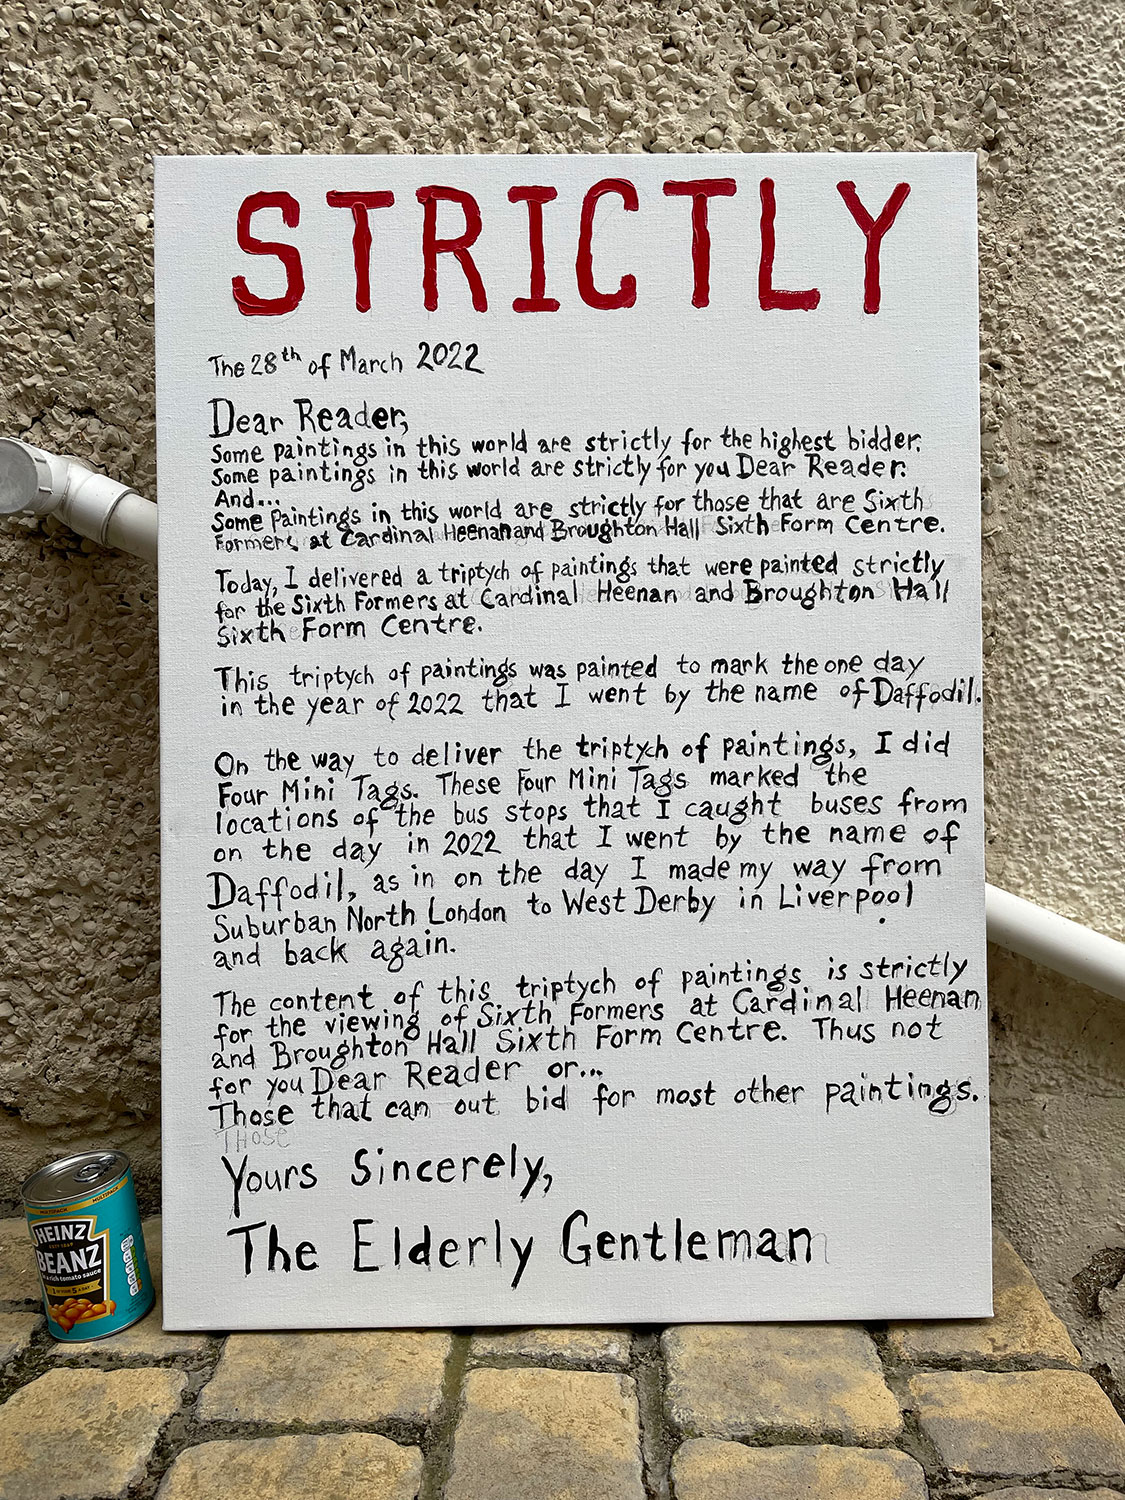 STRICTLY
The 28th of March 2022
Dear Reader,
Some paintings in this world are strictly for the highest bidder.
Some paintings in this world are strictly for you Dear Reader.
And...
Some Paintings in this world are strictly for those that are Sixth
Formers at Cardinal Heenan and Broughton Hall Sixth Form Centre.
Today, I delivered a triptych of paintings that were painted strictly
for the Sixth Formers at Cardinal Heenan and Broughton Hall
Sixth Form Centre.
This triptych of paintings was painted to mark the one day
in the year of 2022 that I went by the name of Daffodil.
On the way to deliver the triptych of paintings, I did
Four Mini Tags. These Four Mini Tags marked the
locations of the bus stops that I caught buses from
on the day in 2022 that I went by the name of
Daffodil, as in on the day I made my way from
Suburban North London to West Derby in Liverpool
and back again.
The content of this triptych of paintings is strictly
for the viewing of Sixth Formers at Cardinal Heenan
and Broughton Hall Sixth Form Centre. Thus not
for you Dear Reader or...
Those that can out bid for most other paintings.
THOSE
Yours Sincerely,
The Elderly Gentleman
MULTIPACK MULTIPACK
HEINZ
BEANZ
in a rich tomato sauce
1 OF YOUR 5 A DAY